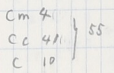 Cm 4
Cc 41 } 55
C 10